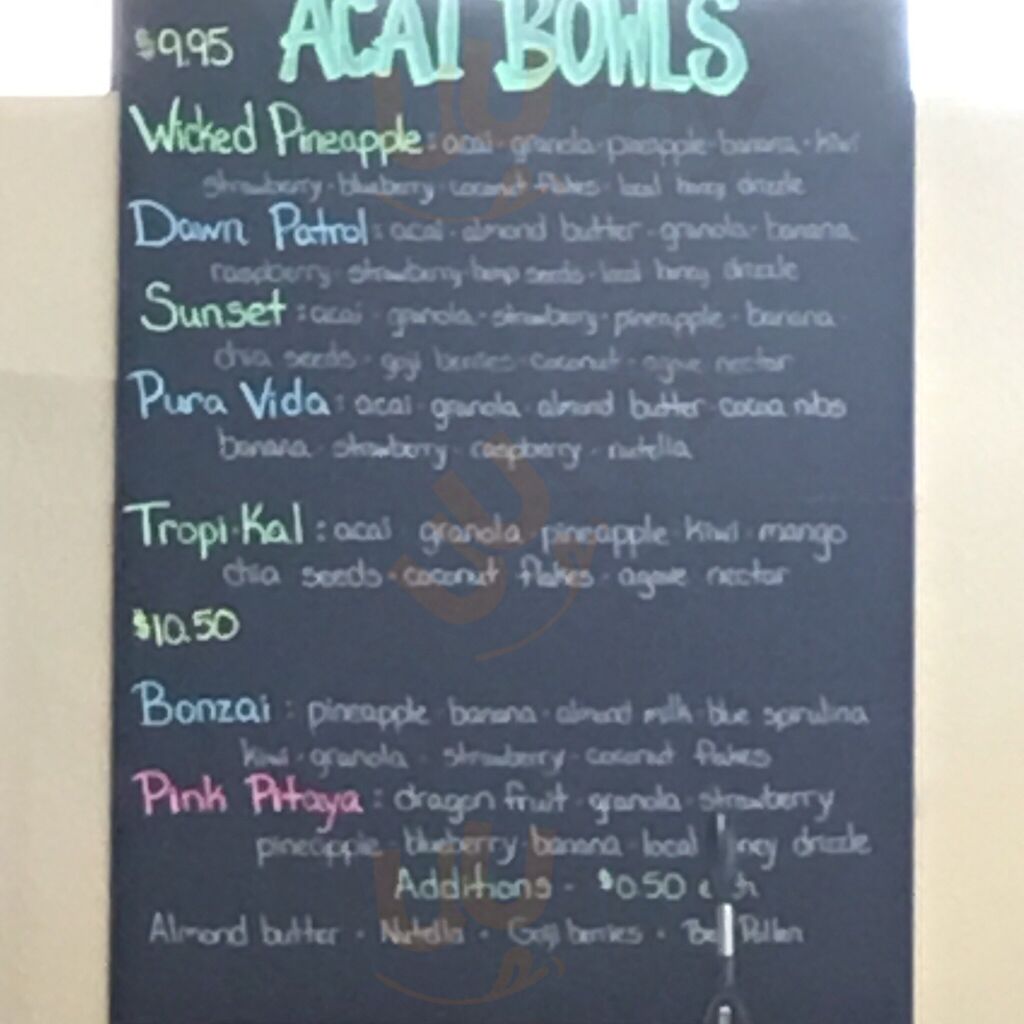 ACAI BOWLS
$9.95
Wicked Pineapple : acai · granola · pineapple · banana · kiwi
strawberry · blueberry · coconut flakes · local honey drizzle
Dawn Patrol : acai · almond butter · granola · banana
raspberry · strawberry · hemp seeds · local honey drizzle
Sunset : acai · granola · strawberry · pineapple · banana
chia seeds · goji berries · coconut · agave nectar
Pura Vida : acai · granola · almond butter · cacao nibs
banana · strawberry · raspberry · nutella
Tropi·Kal : acai granola pineapple · kiwi · mango
chia seeds · coconut flakes · agave nectar
$10.50
Bonzai : pineapple · banana · almond milk · blue spirulina
kiwi · granola · strawberry · coconut flakes
Pink Pitaya : dragon fruit · granola · strawberry
pineapple · blueberry · banana · local drizzle
Additions - $0.50
Almond butter · Nutella · Goji berries · Bee Pollen